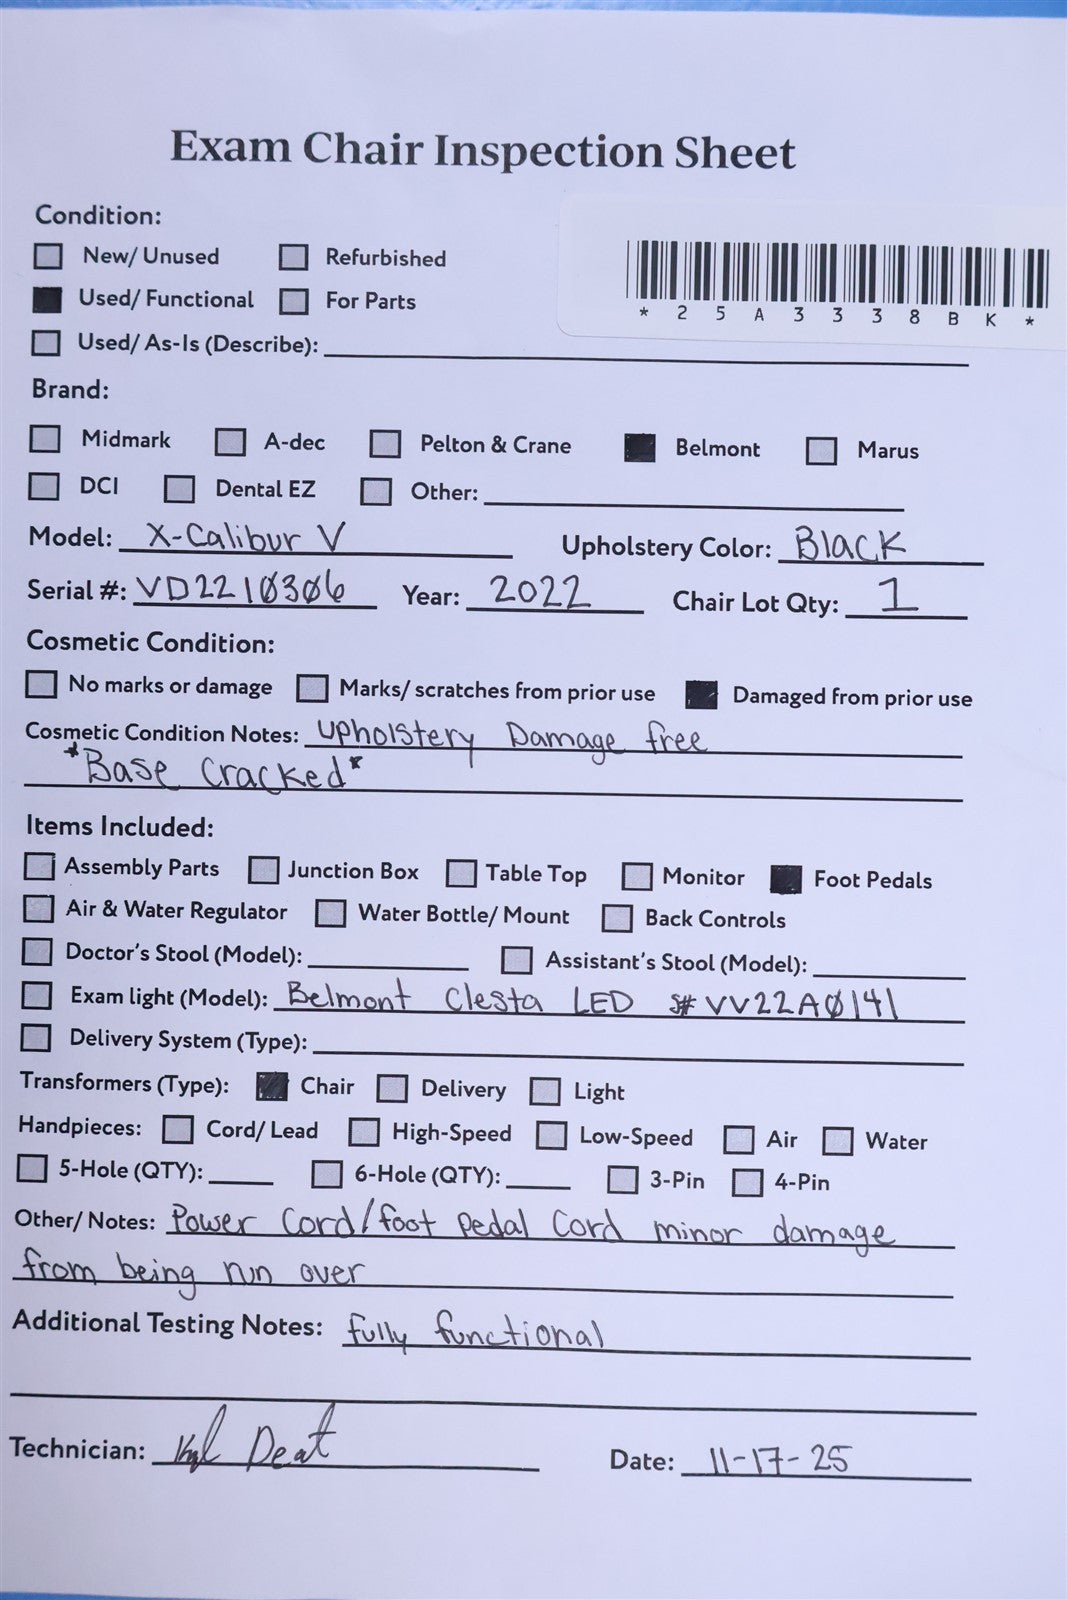 Exam Chair Inspection Sheet
Condition:
New/ Unused Refurbished
Used/ Functional For Parts
* 2 5 A 3 3 3 8 B K *
Used/ As-Is (Describe):
Brand:
Midmark A-dec Pelton & Crane Belmont Marus
DCI Dental EZ Other:
Model: X-Calibur V Upholstery Color: Black
Serial #: VD2210306 Year: 2022 Chair Lot Qty: 1
Cosmetic Condition:
No marks or damage Marks/ scratches from prior use Damaged from prior use
Cosmetic Condition Notes: Upholstery Damage free
*Base Cracked*
Items Included:
Assembly Parts Junction Box Table Top Monitor Foot Pedals
Air & Water Regulator Water Bottle/ Mount Back Controls
Doctor's Stool (Model): Assistant's Stool (Model):
Exam light (Model): Belmont Clesta LED S# VV22A0141
Delivery System (Type):
Transformers (Type): Chair Delivery Light
Handpieces: Cord/ Lead High-Speed Low-Speed Air Water
5-Hole (QTY): 6-Hole (QTY): 3-Pin 4-Pin
Other/ Notes: Power Cord/foot pedal Cord minor damage
from being run over
Additional Testing Notes: fully functional
Technician:
Date: 11-17-25